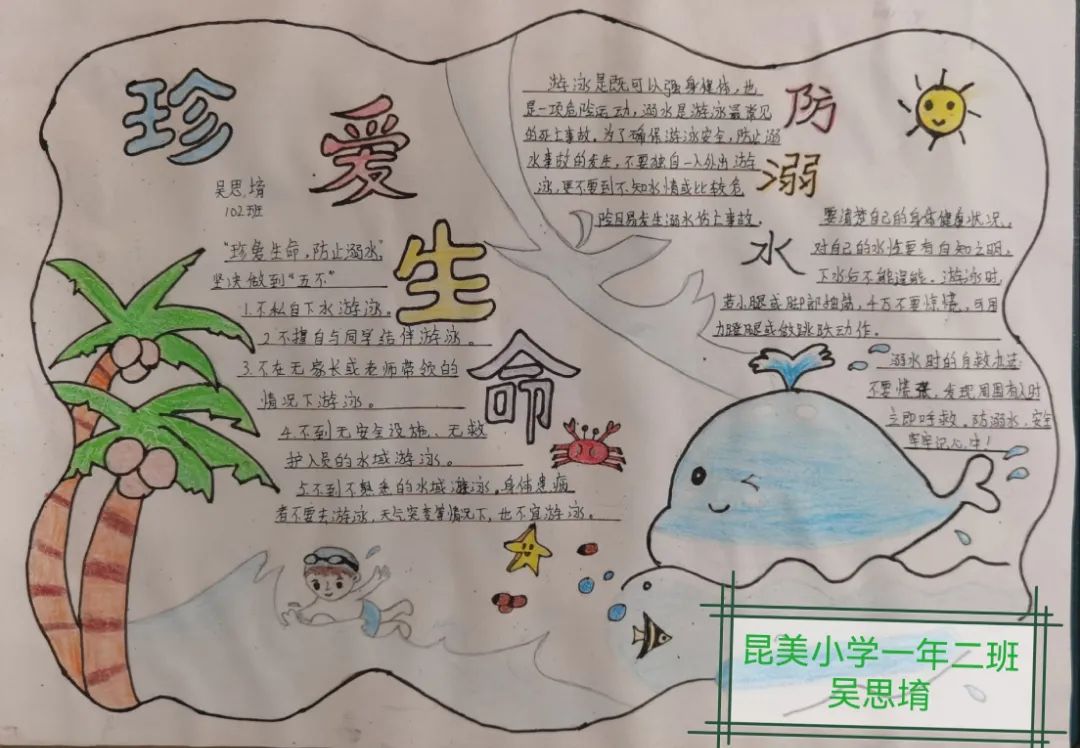 珍爱生命
吴思堉
102班
“珍爱生命,防止溺水”
坚决做到“五不”
1.不私自下水游泳。
2.不擅自与同学结伴游泳。
3.不在无家长或老师带领的
情况下游泳。
4.不到无安全设施、无救
护人员的水域游泳。
5.不到不熟悉的水域游泳。身体患病
者不要去游泳,天气突变等情况下,也不宜游泳。
防溺水
游泳是既可以强身健体,也
是一项危险运动,溺水是游泳最常见
的死亡事故。为了确保游泳安全,防止溺
水事故的发生,不要独自一人外出游
泳,更不要到不知水情或比较危
险且易发生溺水伤亡事故。
要清楚自己的身体健康状况,
对自己的水性要有自知之明,
下水后不能逞能。游泳时,
若小腿或脚部抽筋,千万不要惊慌,可用
力蹬腿或做跳跃动作。
溺水时的自救办法:
不要慌张,发现周围有人时
立即呼救。防溺水,安全
牢牢记心中!
昆美小学一年二班
吴思堉